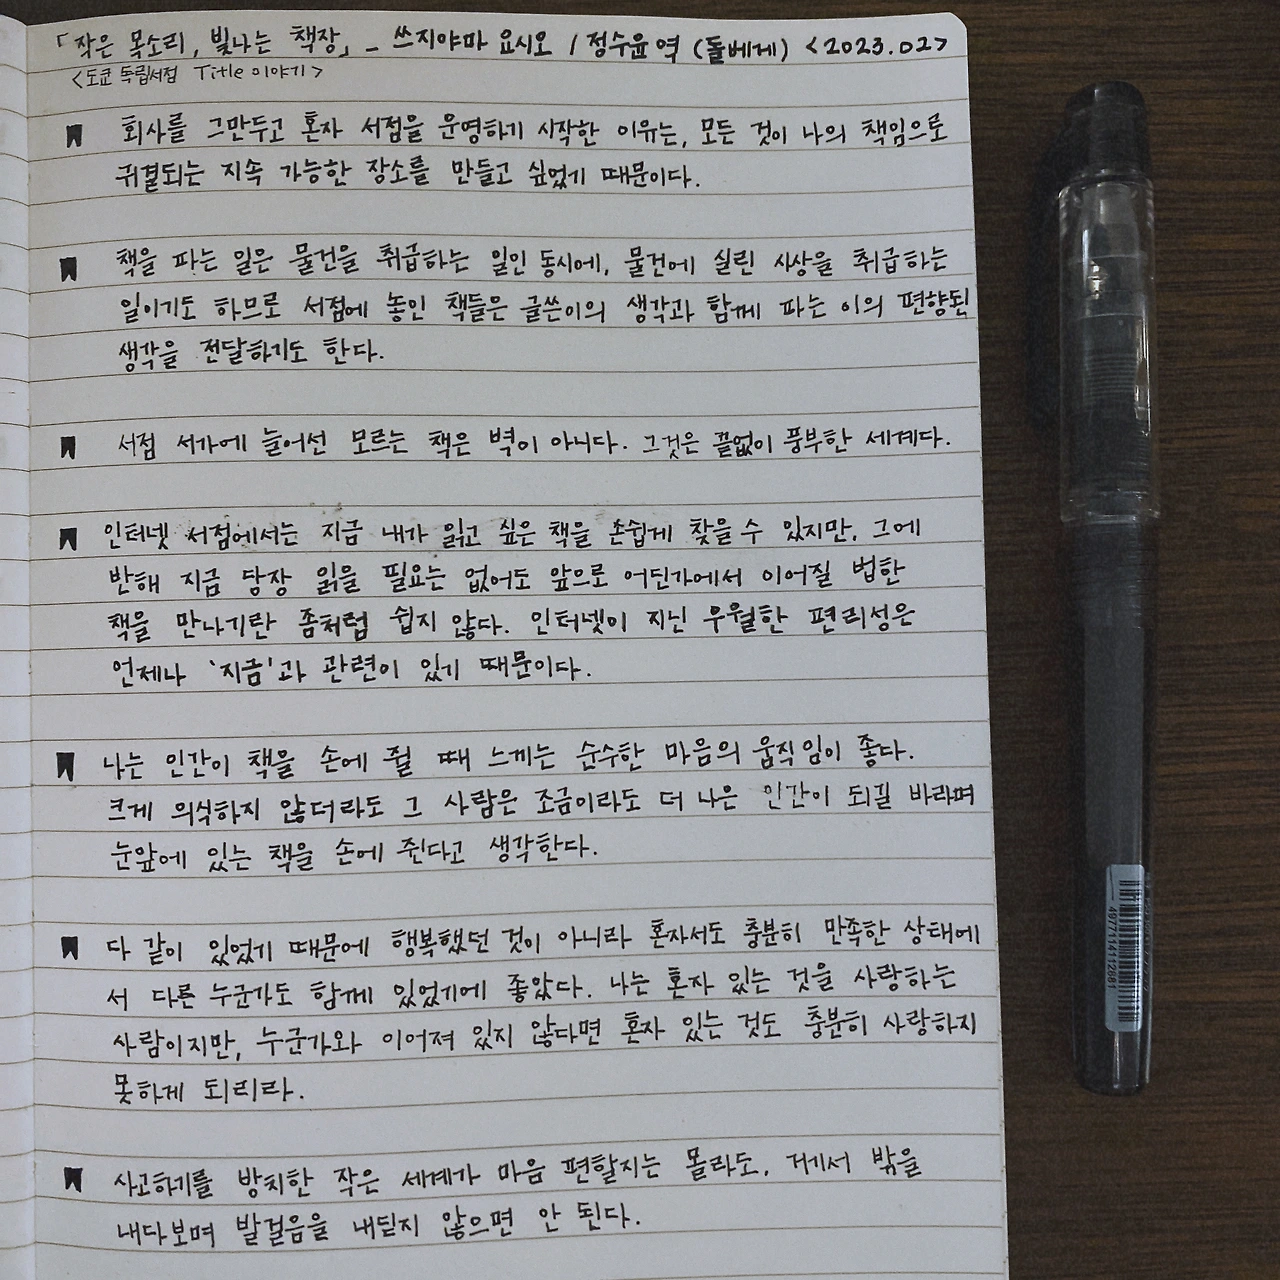 「작은 목소리, 빛나는 책장」 - 쓰지야마 요시오 / 정수윤 역 (돌베게) <2023.02>
<도쿄 독립서점 Title 이야기>
회사를 그만두고 혼자 서점을 운영하기 시작한 이유는, 모든 것이 나의 책임으로
귀결되는 지속 가능한 장소를 만들고 싶었기 때문이다.
책을 파는 일은 물건을 취급하는 일인 동시에, 물건에 실린 사상을 취급하는
일이기도 하므로 서점에 놓인 책들은 글쓴이의 생각과 함께 파는 이의 편향된
생각을 전달하기도 한다.
서점 서가에 늘어선 모르는 책은 벽이 아니다. 그것은 끝없이 풍부한 세계다.
인터넷 서점에서는 지금 내가 읽고 싶은 책을 손쉽게 찾을 수 있지만, 그에
반해 지금 당장 읽을 필요는 없어도 앞으로 어딘가에서 이어질 법한
책을 만나기란 좀처럼 쉽지 않다. 인터넷이 지닌 우월한 편리성은
언제나 '지금'과 관련이 있기 때문이다.
나는 인간이 책을 손에 쥘 때 느끼는 순수한 마음의 움직임이 좋다.
크게 의식하지 않더라도 그 사람은 조금이라도 더 나은 인간이 되길 바라며
눈앞에 있는 책을 손에 쥔다고 생각한다.
다 같이 있었기 때문에 행복했던 것이 아니라 혼자서도 충분히 만족한 상태에
서 다른 누군가도 함께 있었기에 좋았다. 나는 혼자 있는 것을 사랑하는
사람이지만, 누군가와 이어져 있지 않다면 혼자 있는 것도 충분히 사랑하지
못하게 되리라.
사고하기를 방치한 작은 세계가 마음 편할지는 몰라도, 거기서 밖을
내다보며 발걸음을 내딛지 않으면 안 된다.
4977114112681